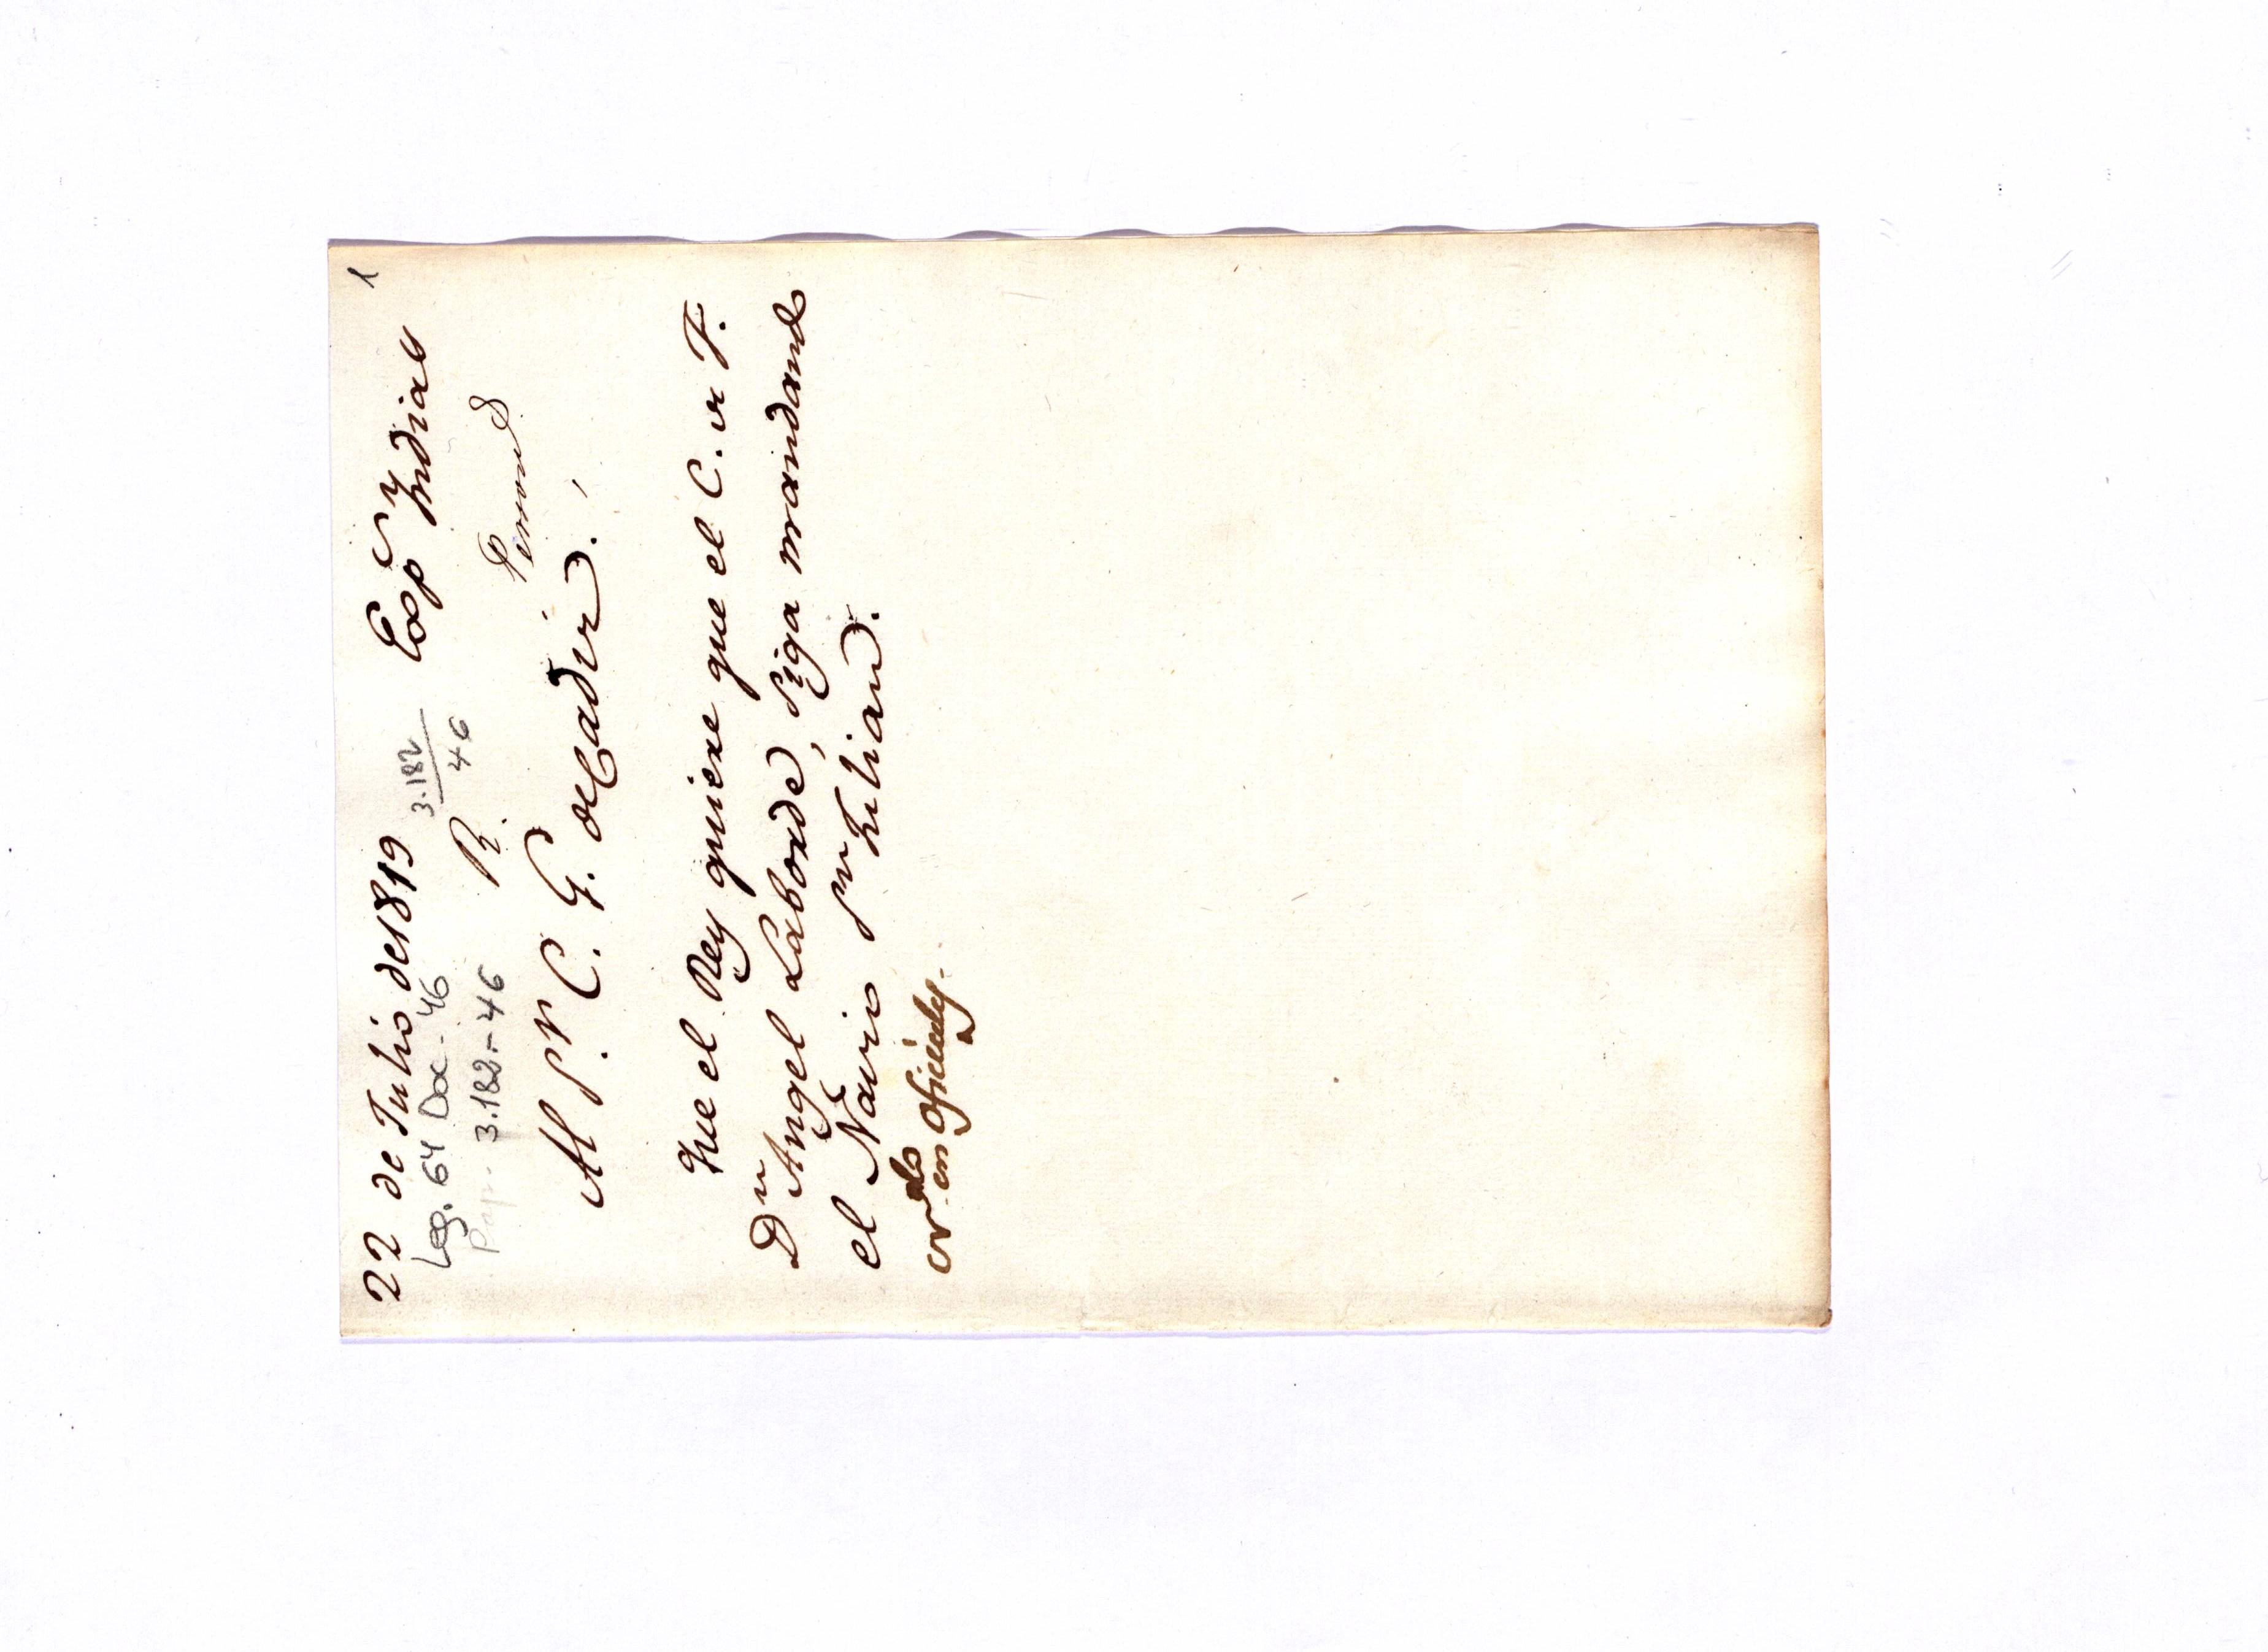 22 de Julio de 1819 Exp.n Yndias
3.182
46
Leg. 64 Doc - 46
R.
Pap. 3.182.- 46
Personal
Al S.r C. G. de Cadiz.
Que el Rey quiere que el C. de F.
D.n Angel Laborde, siga mandando
el Navio S.n Julian.
en Oficiales